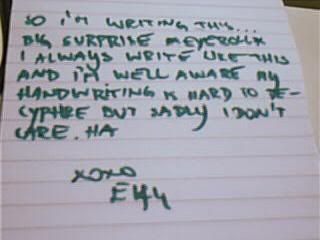 SO I'M WRITING THIS...
BIG SURPRISE MEYEROLLX
I ALWAYS WRITE LIKE THIS
AND I'M WELL AWARE MY
HANDWRITING IS HARD TO DE-
CYPHRE BUT SADLY I DON'T
CARE. HA
XOXO